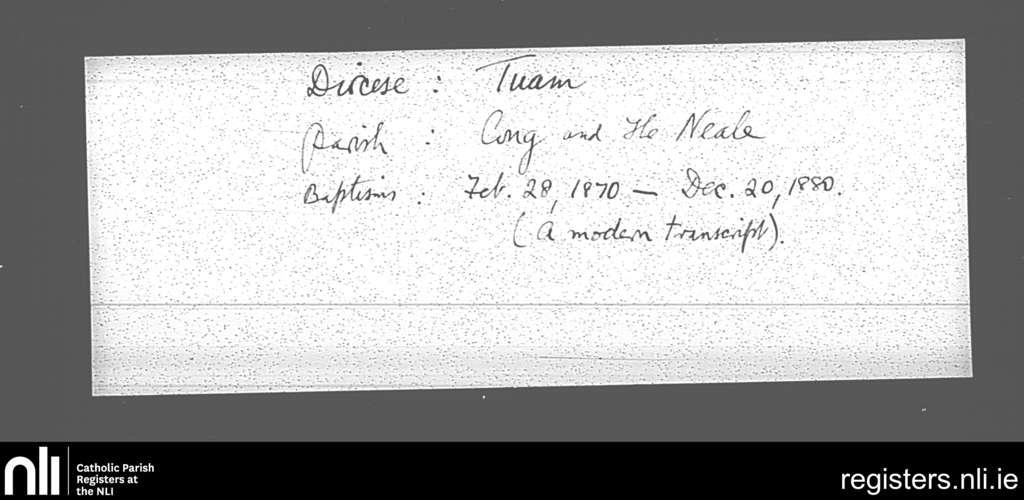 Diocese : Tuam
Parish : Cong and The Neale
Baptisms : Feb. 28, 1870 — Dec. 20, 1880.
(A modern transcript).
nli
Catholic Parish
Registers at
the NLI
registers.nli.ie